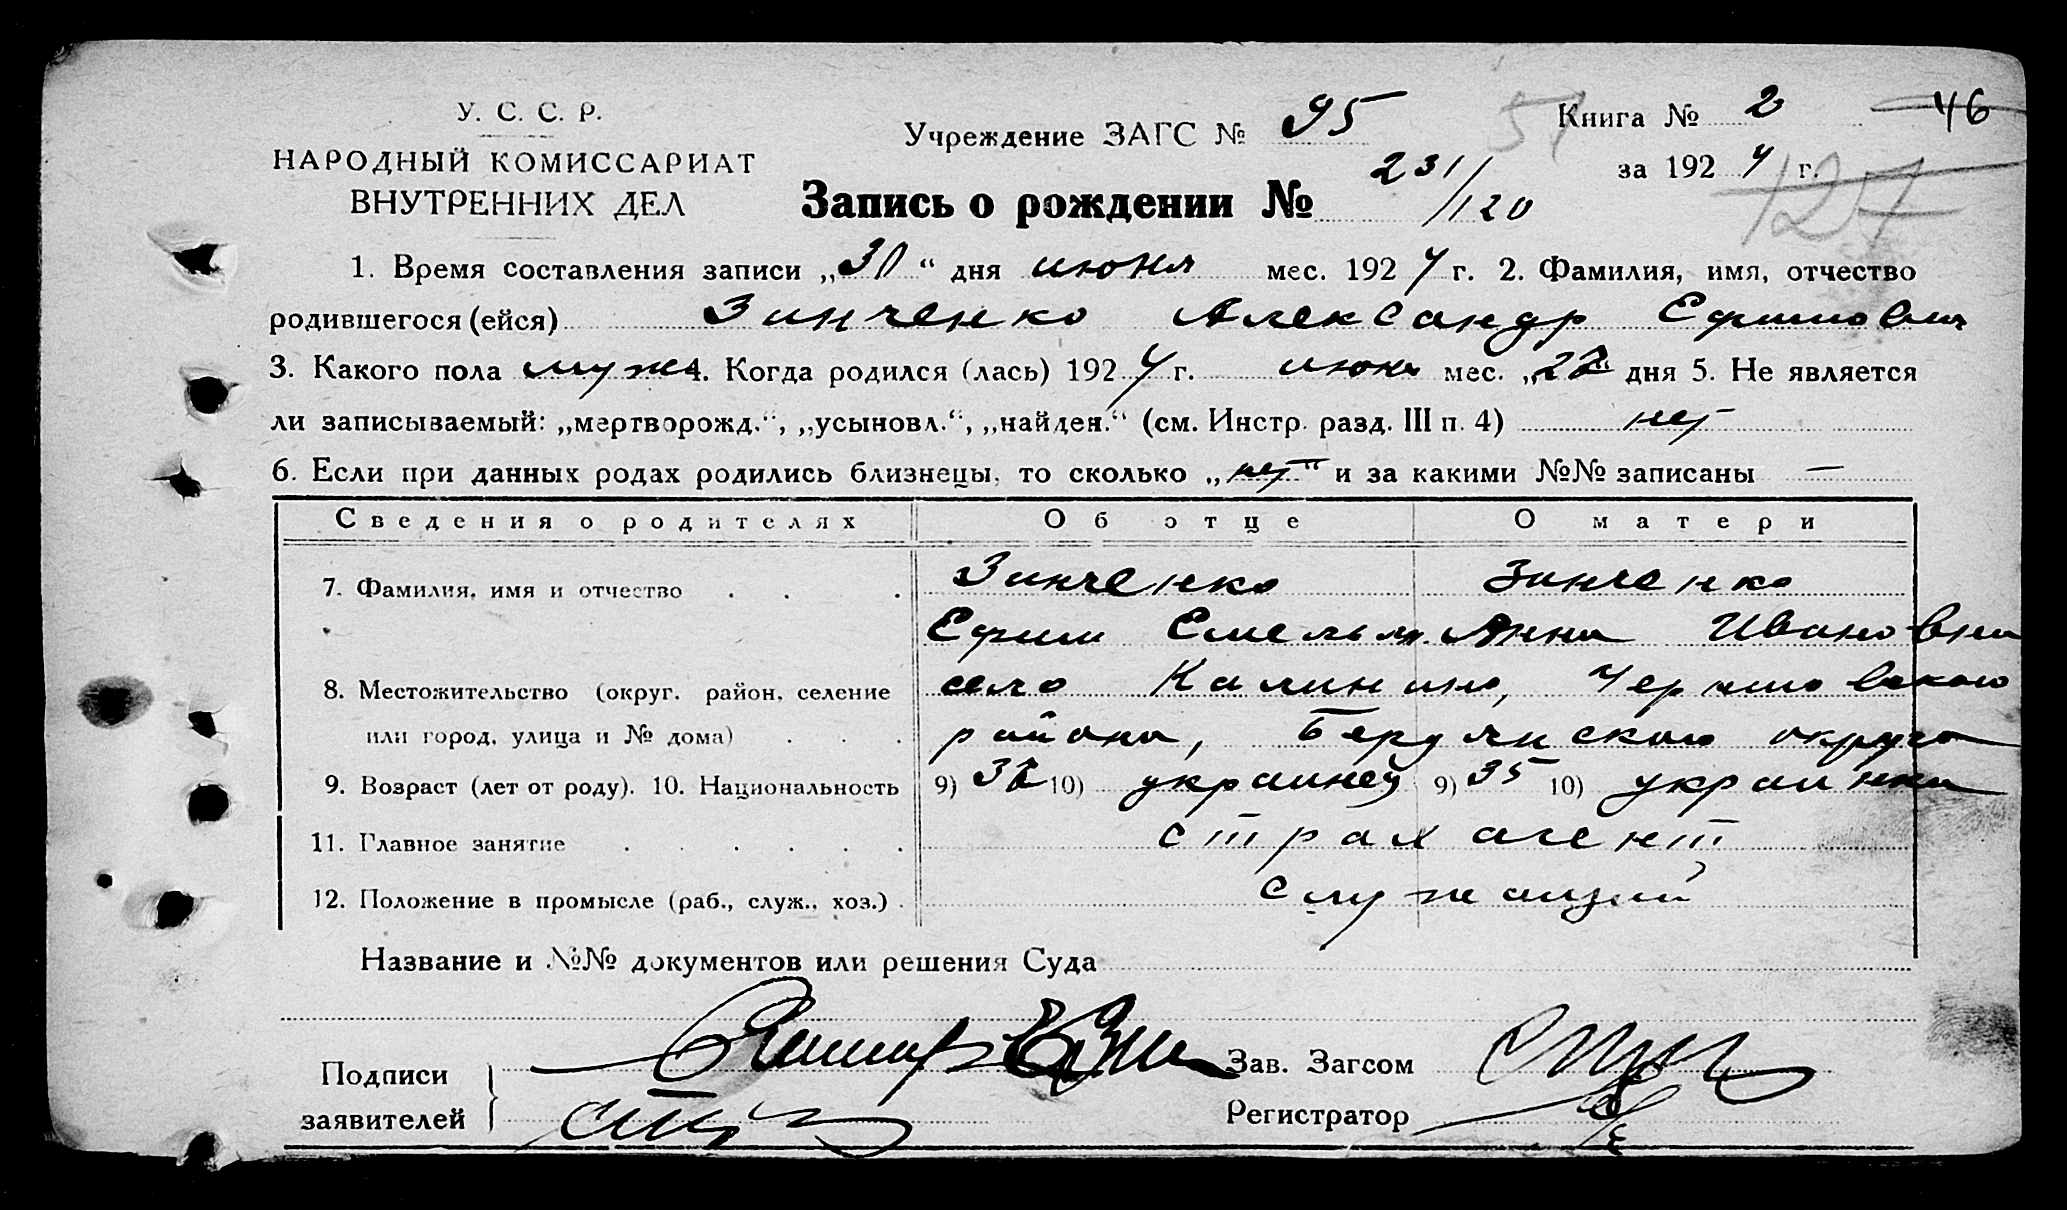 У. С. С. Р.
НАРОДНЫЙ КОМИССАРИАТ
ВНУТРЕННИХ ДЕЛ
Учреждение ЗАГС № 95
51
Книга № 2
46
за 192 4 г.
127
Запись о рождении № 231/120
1. Время составления записи „30“ дня июня мес. 192 4 г. 2. Фамилия, имя, отчество
родившегося (ейся) Зинченко Александр Ефимович
3. Какого пола муж 4. Когда родился (лась) 192 4 г. июня мес. „22“ дня 5. Не является
ли записываемый: „мертворожд.“, „усыновл.“, „найден.“ (см. Инстр. разд. III п. 4) нет
6. Если при данных родах родились близнецы, то сколько „нет“ и за какими №№ записаны —
Сведения о родителях Об отце О матери
7. Фамилия, имя и отчество . . . Зинченко Зинченко
Ефим Емельян. Анна Ивановна
8. Местожительство (округ, район, селение село Калинино,
или город, улица и № дома) . . . района, округа
9. Возраст (лет от роду). 10. Национальность 9) 10) украинец 9) 35 10) украинка
11. Главное занятие . . . . . . страх агент
12. Положение в промысле (раб., служ., хоз.) . служащий
Название и №№ документов или решения Суда
Подписи
заявителей
Зав. Загсом
Регистратор